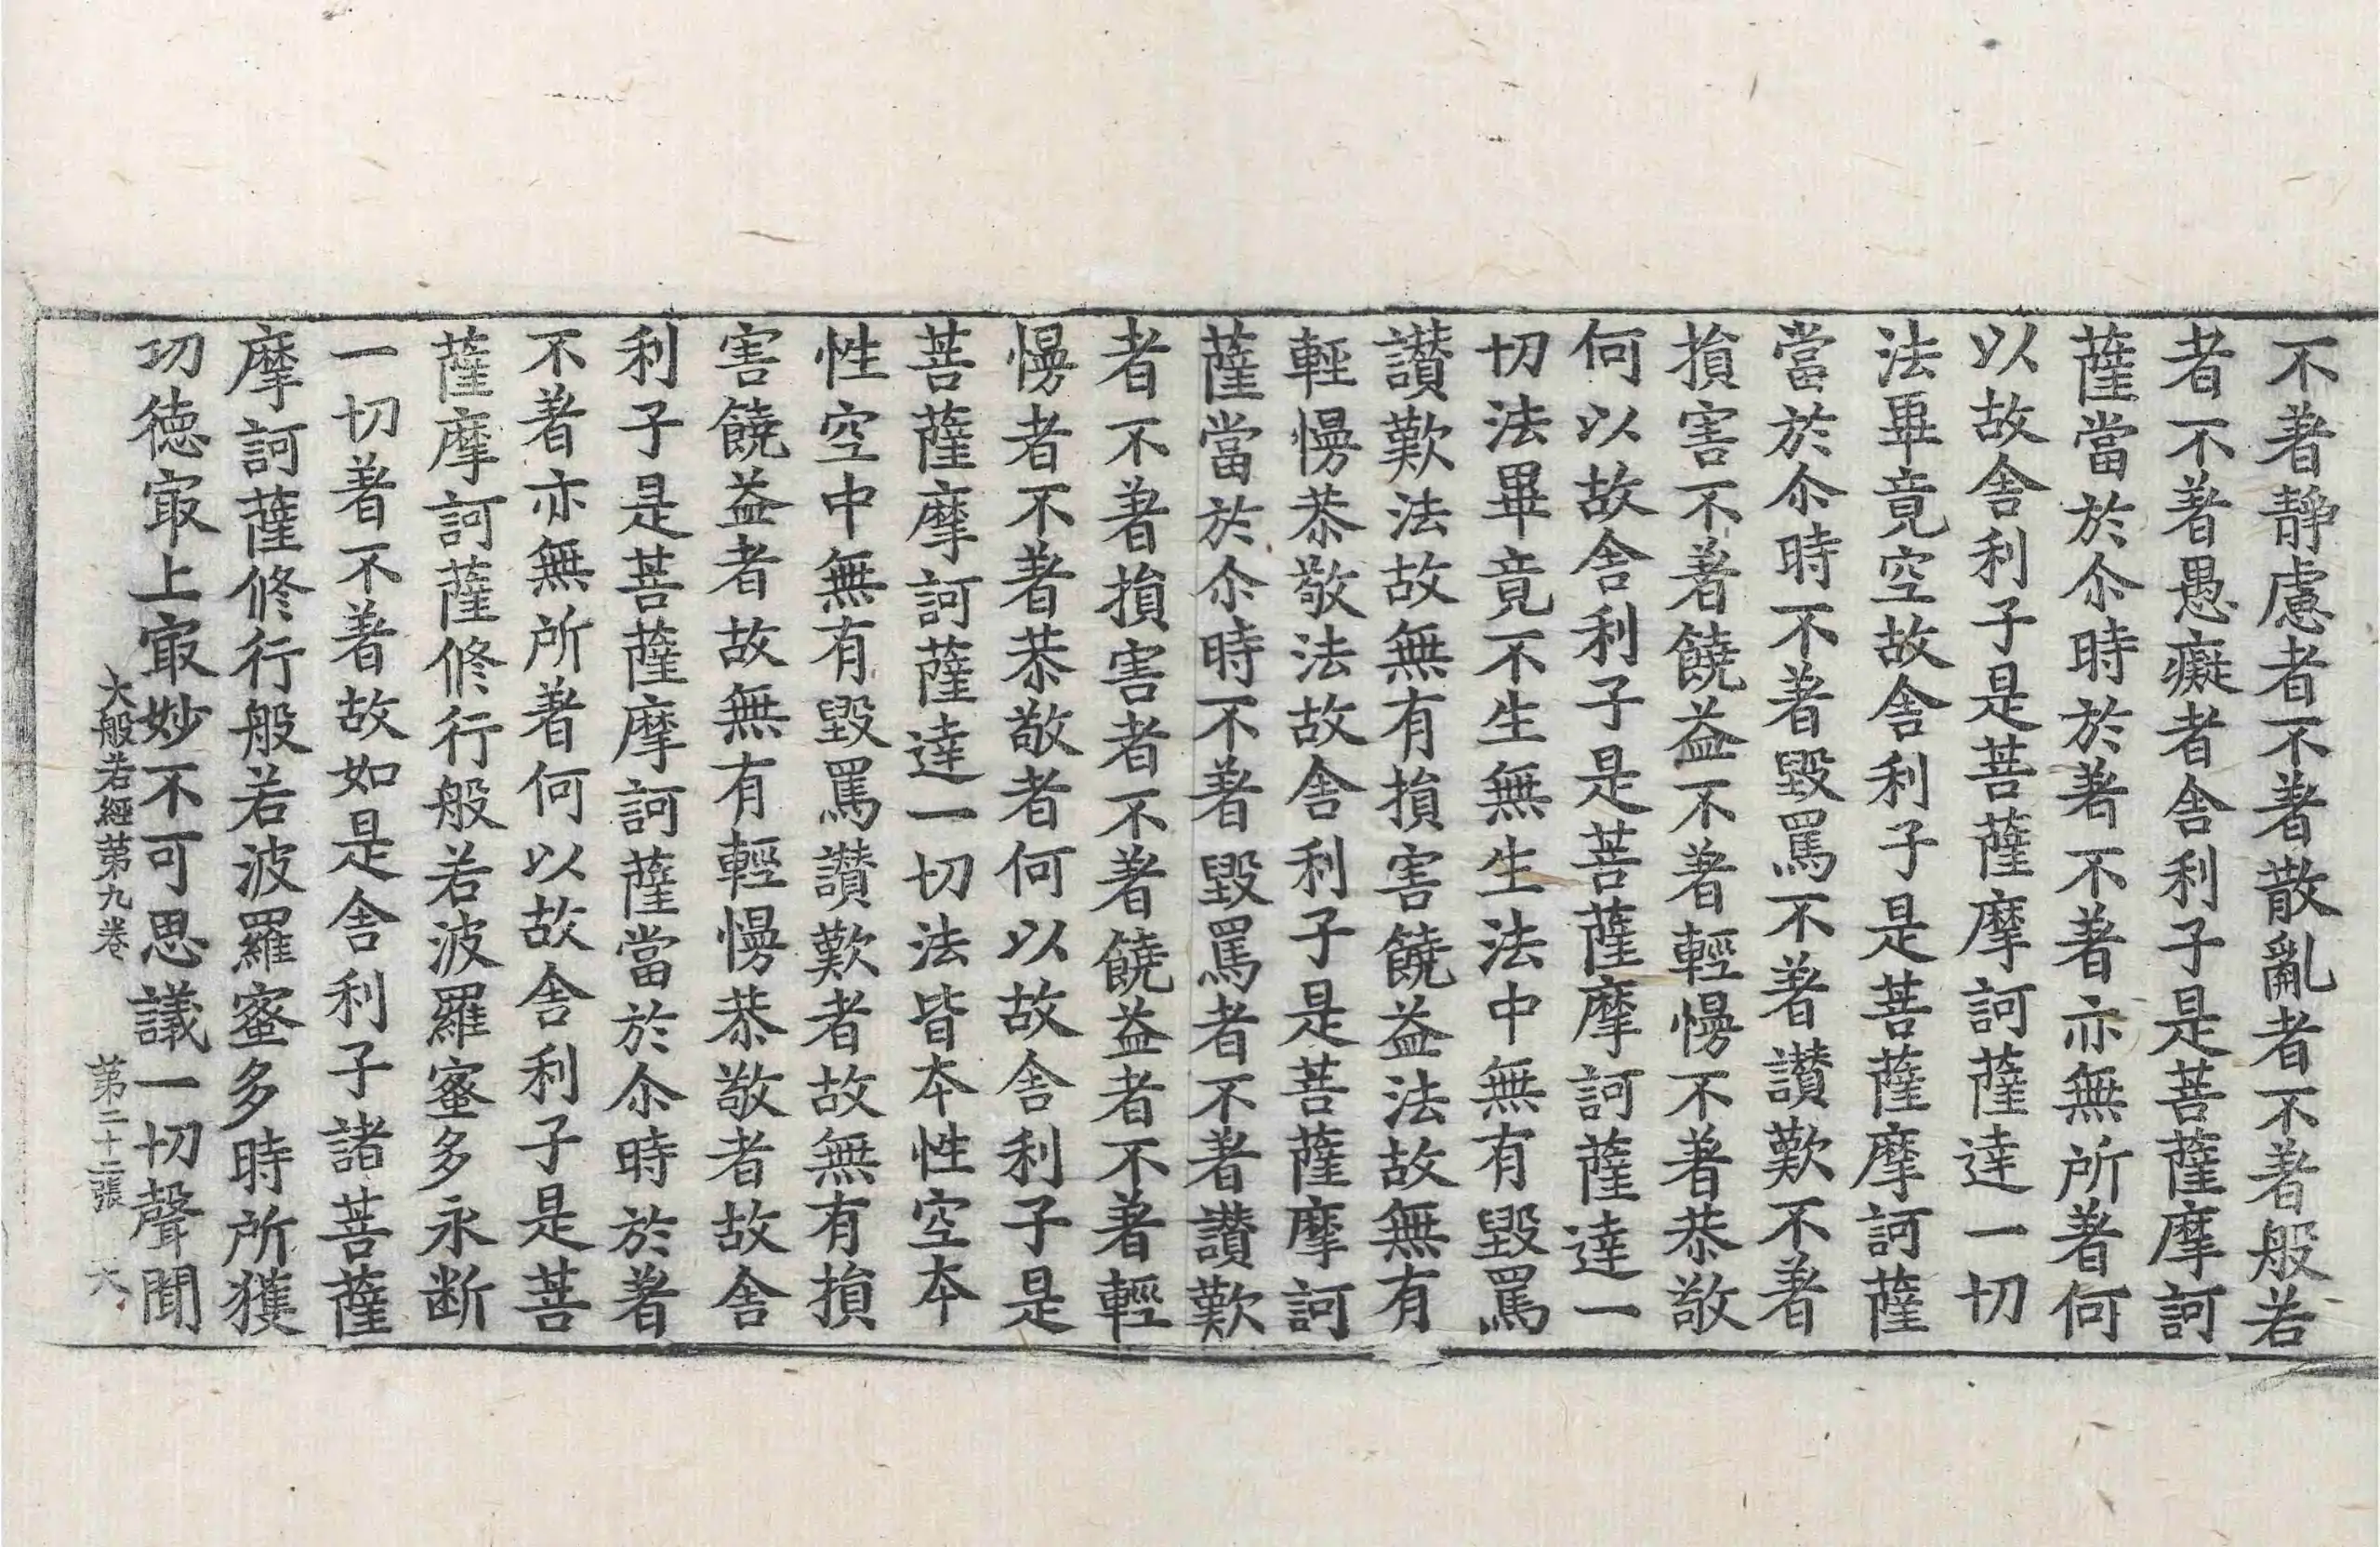 不著靜慮者不著散亂者不著般若
者不著愚癡者舍利子是菩薩摩訶
薩當於尒時於著不著亦無所著何
以故舍利子是菩薩摩訶薩達一切
法畢竟空故舍利子是菩薩摩訶薩
當於尒時不著毀罵不著讚歎不著
損害不著饒益不著輕慢不著恭敬
何以故舍利子是菩薩摩訶薩達一
切法畢竟不生無生法中無有毀罵
讚歎法故無有損害饒益法故無有
輕慢恭敬法故舍利子是菩薩摩訶
薩當於尒時不著毀罵者不著讚歎
者不著損害者不著饒益者不著輕
慢者不著恭敬者何以故舍利子是
菩薩摩訶薩達一切法皆本性空本
性空中無有毀罵讚歎者故無有損
害饒益者故無有輕慢恭敬者故舍
利子是菩薩摩訶薩當於尒時於著
不著亦無所著何以故舍利子是菩
薩摩訶薩修行般若波羅蜜多永断
一切著不著故如是舍利子諸菩薩
摩訶薩修行般若波羅蜜多時所獲
功德㝡上㝡妙不可思議一切聲聞
大般若經第九卷 第二十二張 大